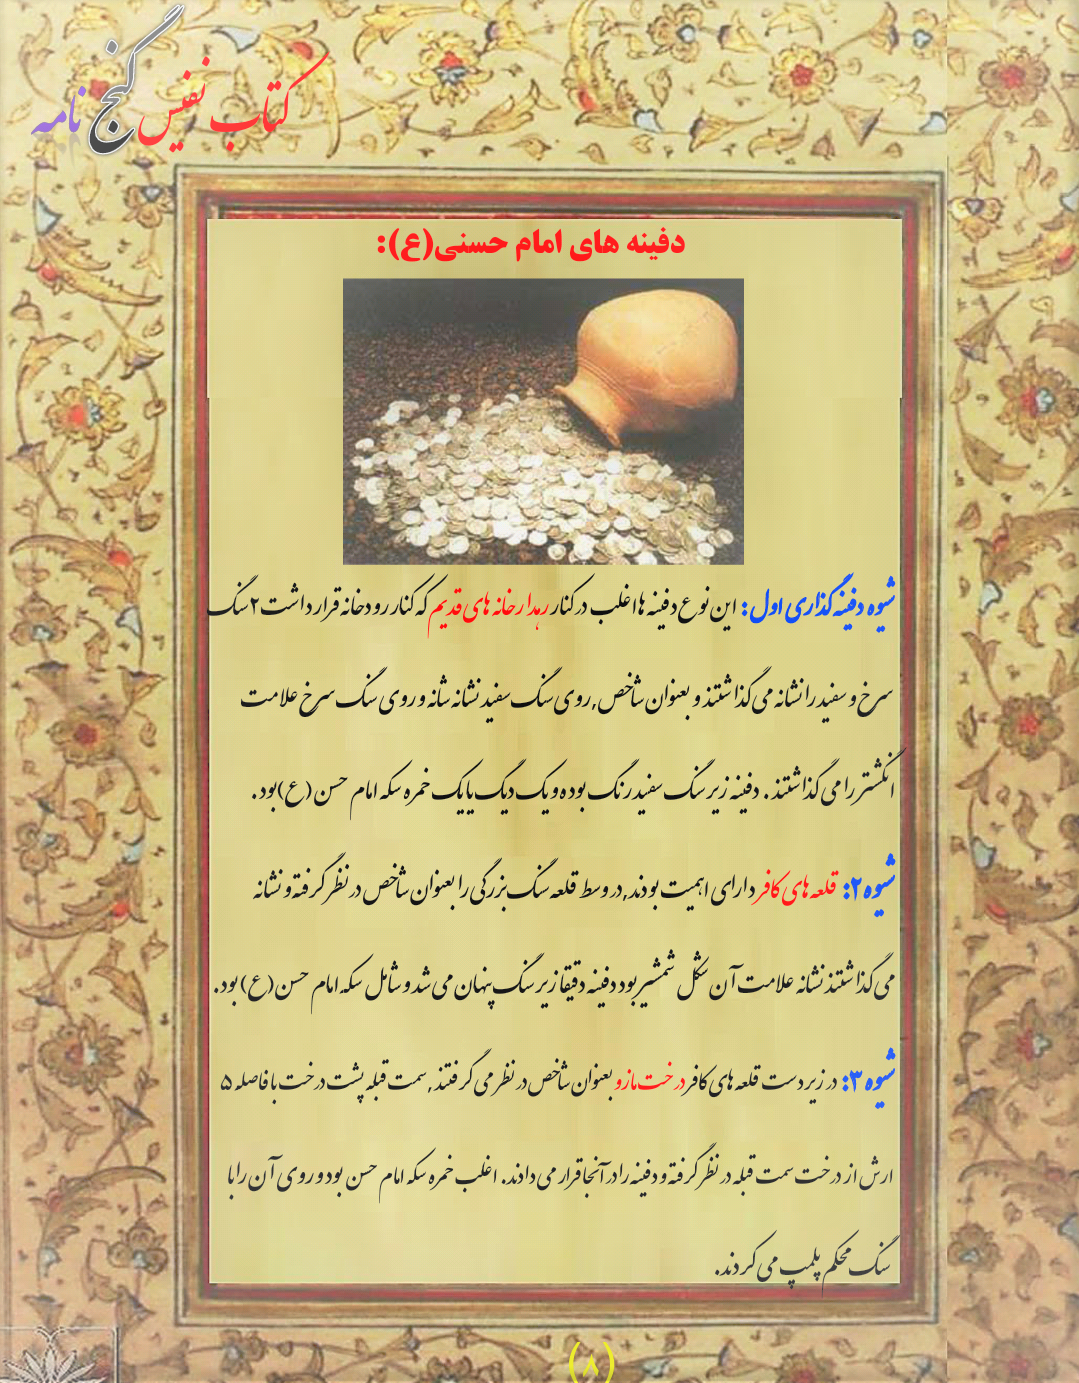 کتاب نفیس گنج نامه
دفینه های امام حسنی(ع):
شیوه دفینه گذاری اول: این نوع دفینه ها اغلب در کنار رهدارخانه های قدیم که کنار رودخانه قرار داشت ۲سنگ
سرخ و سفید را نشانه می گذاشتند و بعنوان شاخص,روی سنگ سفید نشانه شانه و روی سنگ سرخ علامت
انگشتر را می گذاشتند . دفینه زیر سنگ سفید رنگ بوده و یک دیگ یا یک خمره سکه امام حسن (ع)بود .
شیوه ۲: قلعه های کافر دارای اهمیت بودند,در وسط قلعه سنگ بزرگی را بعنوان شاخص در نظر گرفته و نشانه
می گذاشتند نشانه علامت آن شکل شمشیر بود دفینه دقیقا زیر سنگ پنهان می شد و شامل سکه امام حسن(ع) بود.
شیوه ۳: در زیر دست قلعه های کافر درخت مازو بعنوان شاخص در نظر می گرفتند ,سمت قبله پشت درخت با فاصله ۵
ارش از درخت سمت قبله در نظر گرفته و دفینه را در آنجا قرار می دادند. اغلب خمره سکه امام حسن بود و روی آن را با
سنگ محکم پلمپ می کردند.
(۸)